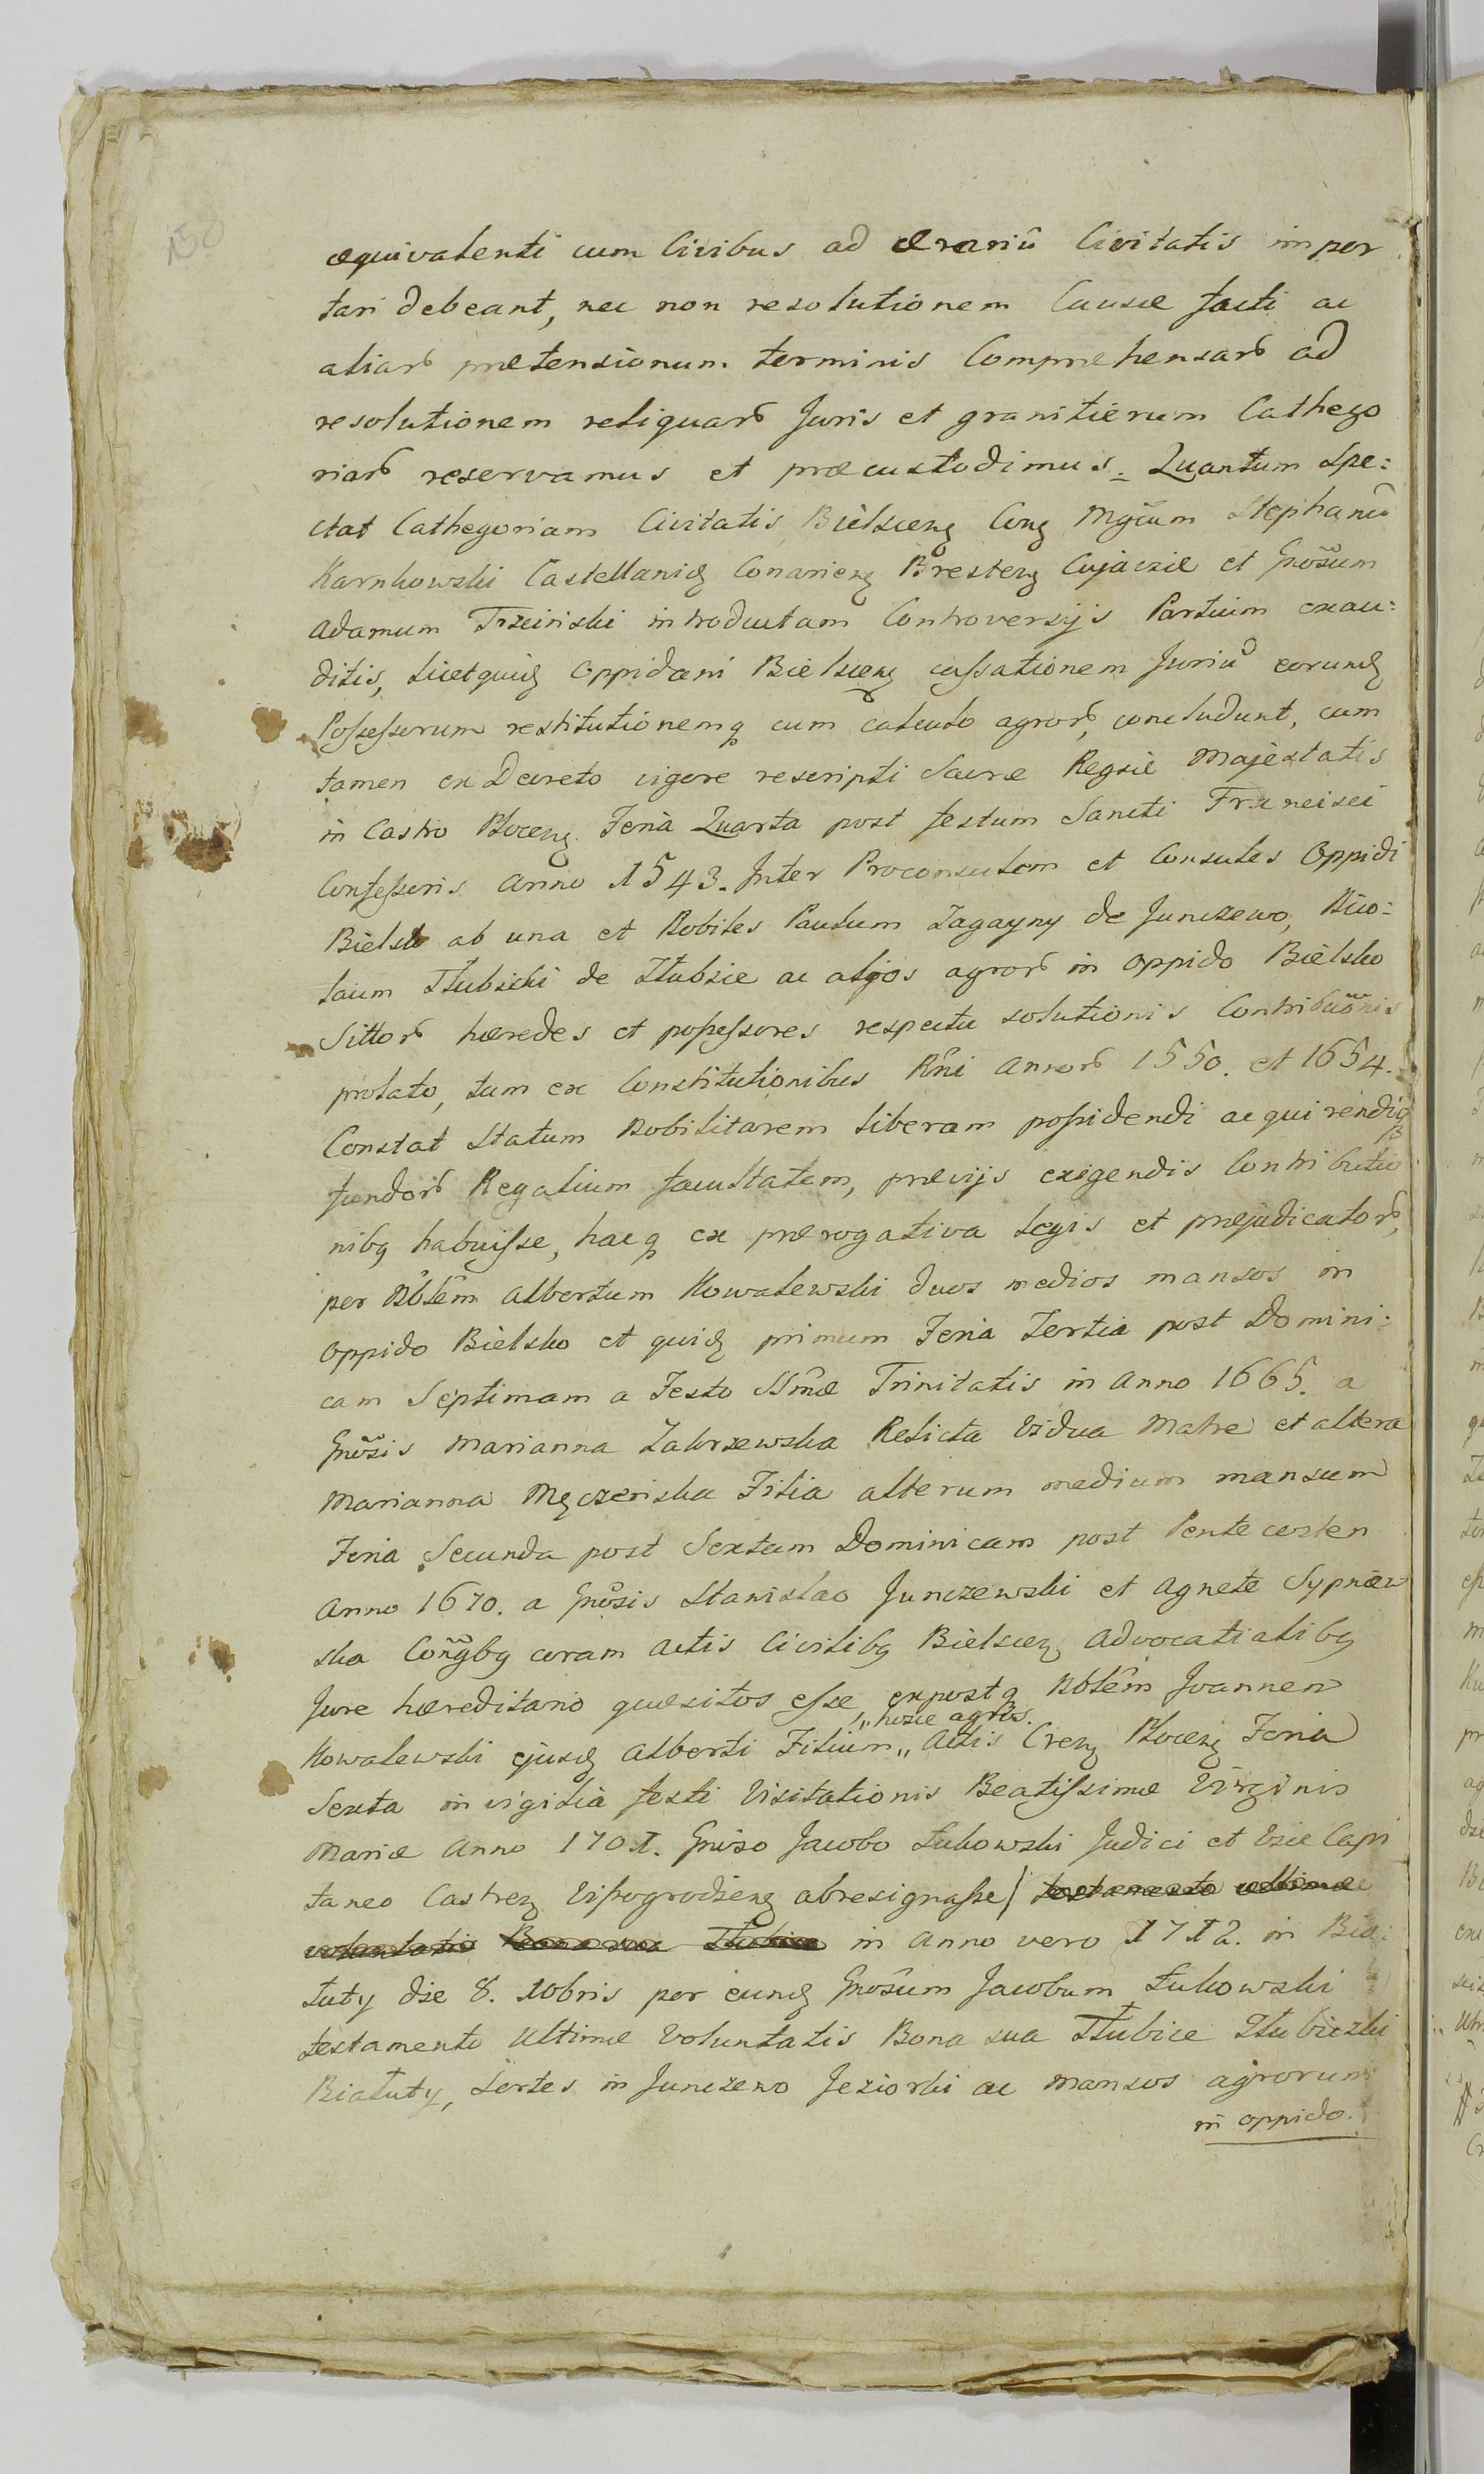 158
æquivalenti cum Civibus ad Ærariũ Civitatis impor
tari debeant, nec non resolutionem Causæ facti ac
aliarꝝ prætensionum terminis Compræhensarꝝ ad
resolutionem reliquarꝝ Juris et granitierum Cathego
riarꝝ reservamus et præcustodimus. Quantum Spe:
ctat Cathegoriam Civitatis Bielscenꝫ Conꝫ Mgcum Stephanũ
Karnkowski Castellanidꝫ Conarienꝫ Brestenꝫ Cujaviæ et Gnõsum
Adamum Trzciński introductam Controversijs Partium exau:
ditis, licet quidꝫ oppidani Bielscenꝫ cassationem Juriũ eorumdꝫ
Possessorum restitutionemqꝫ cum calculo agrorꝝ, concludunt, cum
tamen ex Decreto vigore rescripti Sacræ Regiæ Majestatis
in Castro Plocenꝫ Feria Quarta post festum Sancti Francisci
Confessoris Anno 1543. Inter Proconsulem et Consules Oppidi
Bielsk ab una et Nobiles Paulum Zagayny de Junczewo, Nico:
laum Słubicki de Słubice ac alios agrorꝝ in oppido Bielsko
Sittorꝝ hæredes et possessores respectu solutionis Contribuõnis
prolato, tum ex Constitutionibus Rñi Annorꝝ 1550. et 1654.
Constat Statum Nobilitarem liberam possidendi acquirendiqꝫ
fundorꝝ Regalium facultatem, prævijs exigendis Contributio
nibꝫ habuisse, hacqꝫ ex prærogativa Legis et præjudicatorꝝ,
per Nblẽm Albertum Kowalewski duos medios mansos in
oppido Bielsko et quidꝫ primum Feria Tertia post Domini:
cam Septimam a Festo SSmæ Trinitatis in Anno 1665. a
Gnõsis Marianna Zakrzewska Relicta Vidua Matre et altera
Marianna Męczeńska Filia alterum medium mansum
Feria Secunda post Sextam Dominicam post Pentecosten
Anno 1670. a Gnõsis Stanislao Junczewski et Agnete Sypniew
ska Conõgbꝫ coram Actis Civilibꝫ Bielscenꝫ Advocatialibꝫ
Jure hæreditario quæsitos esse, expostqꝫ Nblẽm Joannem
„hosce agros.
Kowalewski ejusdꝫ Alberti Filium„ Actis Crenꝫ Plocenꝫ Feria
Sexta in vigilia festi Visitationis Beatissimæ Virginis
Mariæ Anno 1701. Gniso Jacobo Łukowski Judici et Vice Capi
taneo Castrenꝫ Vissogrodienꝫ abresignasse/ testamento ultimæ
voluntatis Bona sua Słubice in Anno vero 1712. in Bia:
łuty die 8. Xbris per eundꝫ Gnõsum Jacobum Łukowski
testamento Ultimæ Voluntatis Bona sua Słubice Słubiczki
Białuty, Sortes in Junczewo Jeziorki ac mansos agrorum
in oppido.